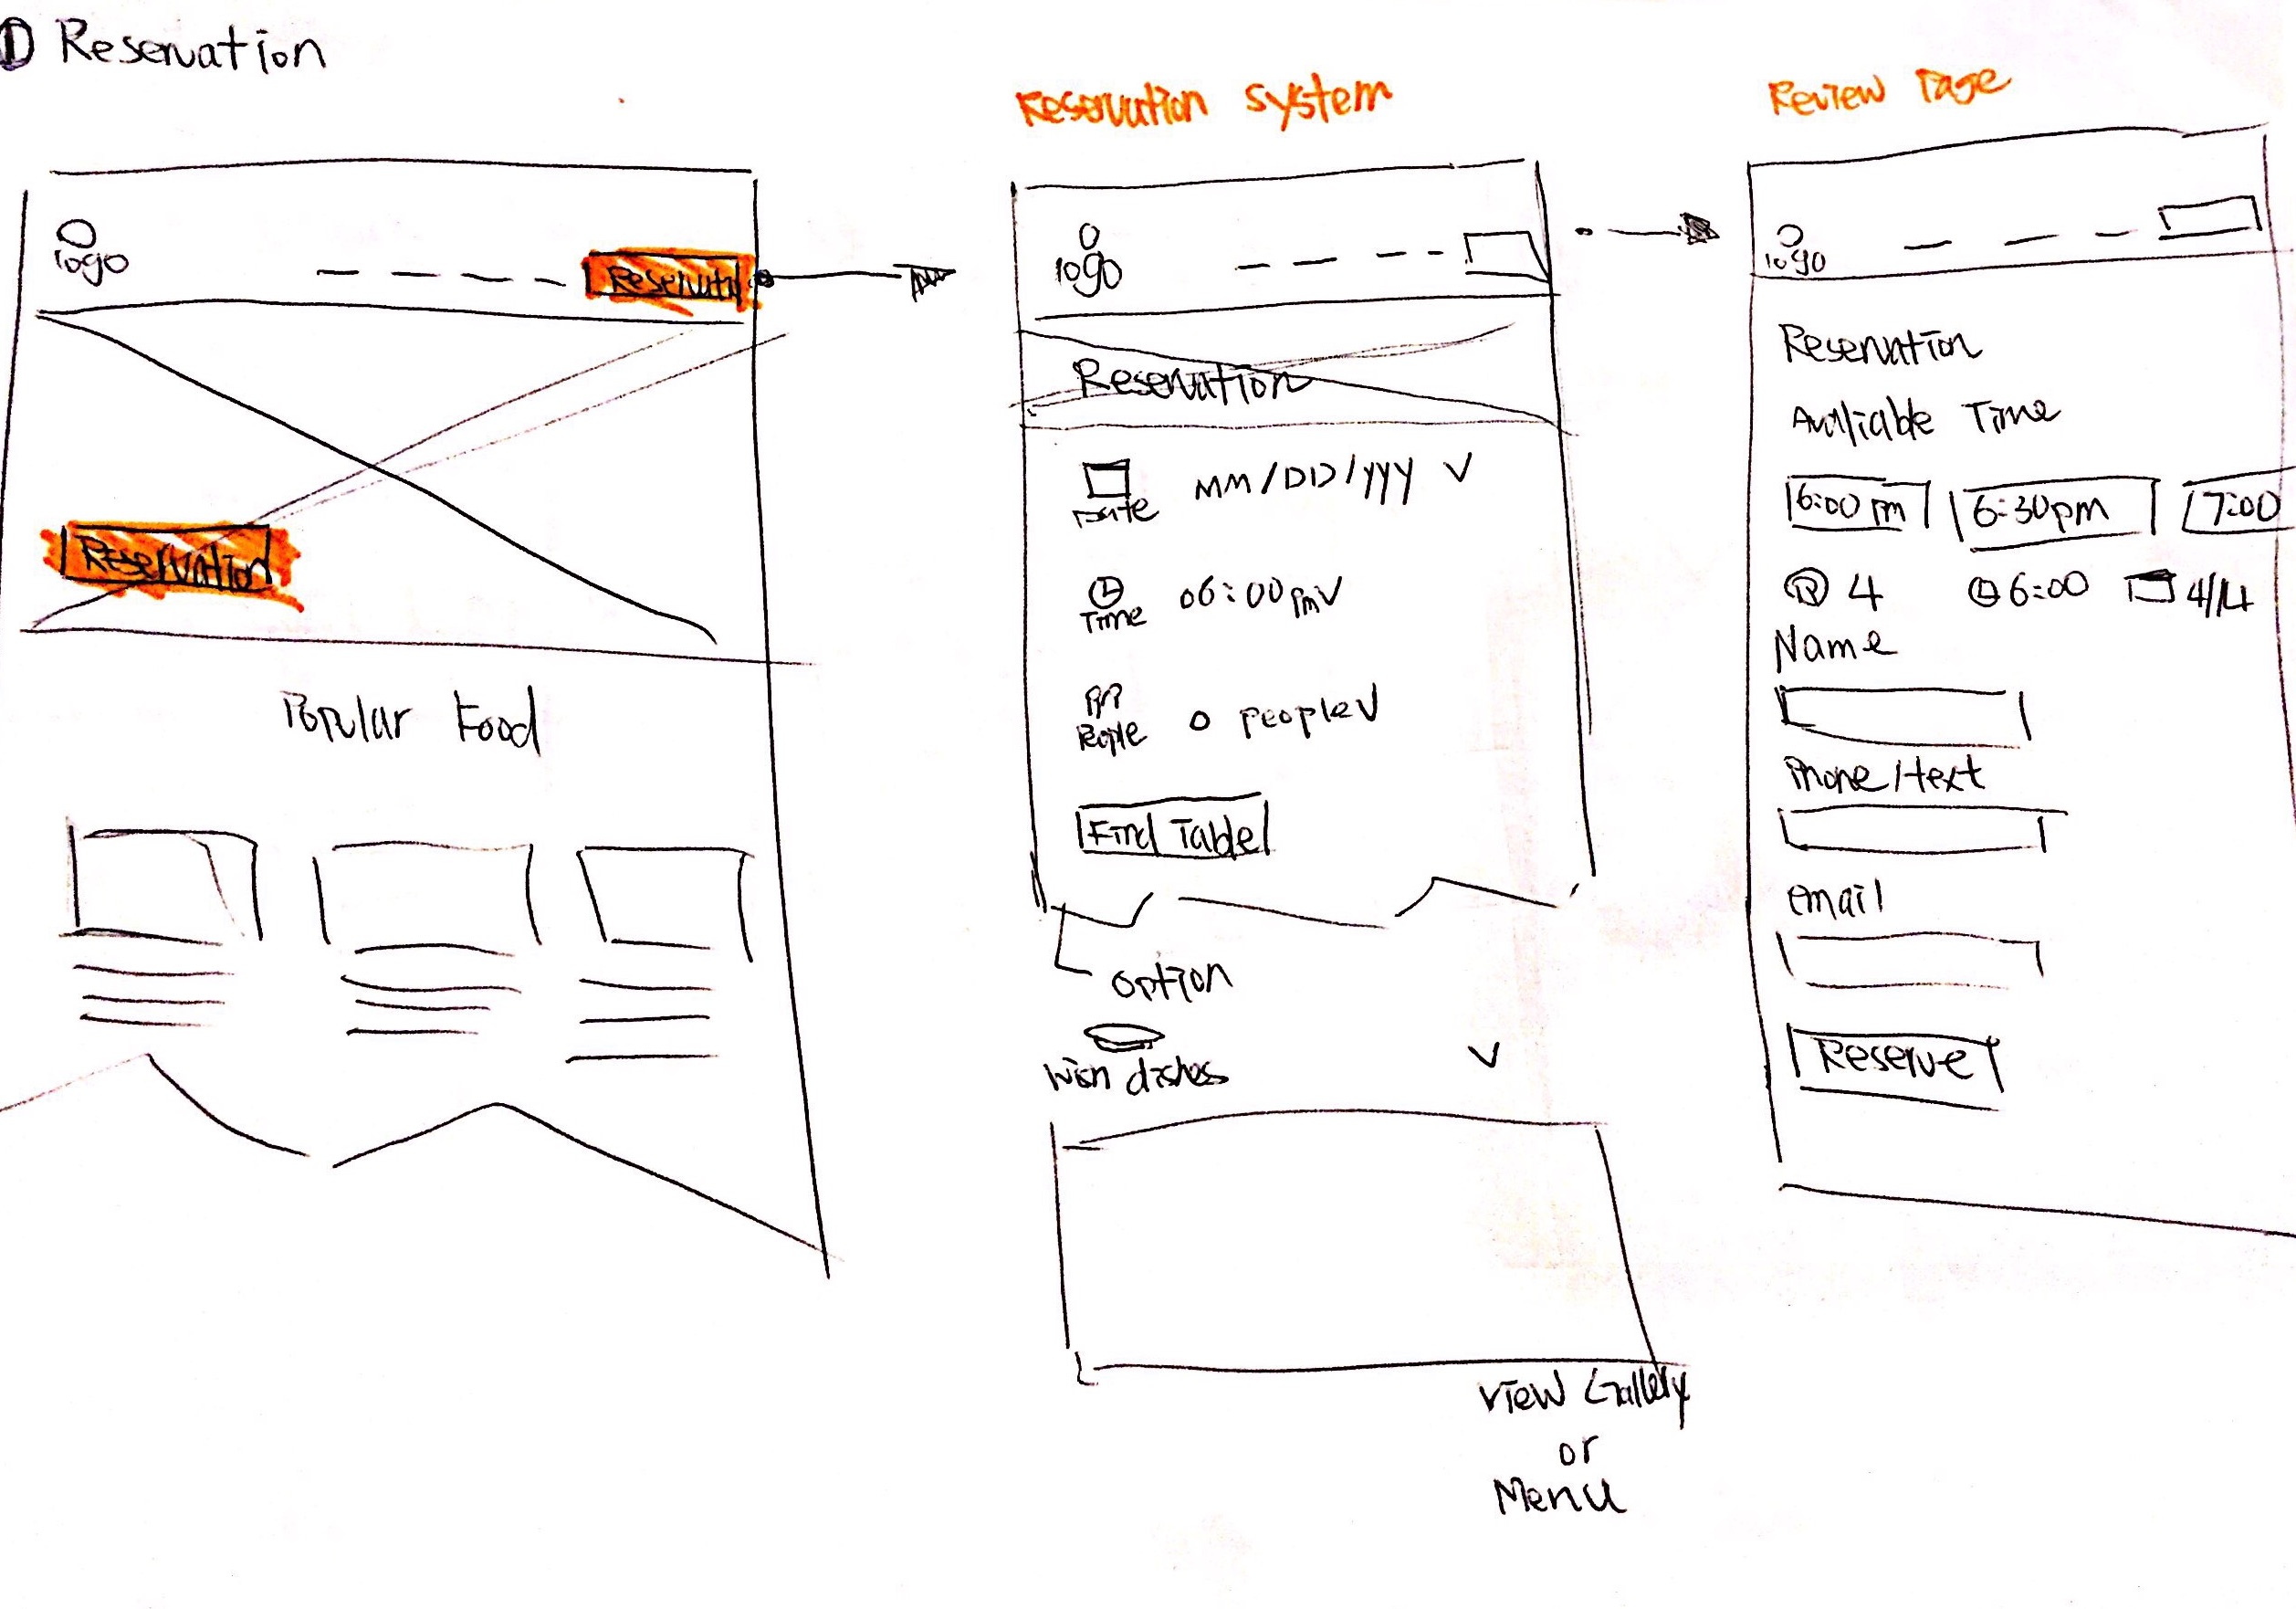 ① Reservation
logo
Reservatn
Reservation
Popular Food
Reservation system
logo
Reservation
Date MM/DD/yyy
Time 06:00pm
People 0 people
Find Table
option
Wish dishes
View Gallery
or
Menu
Review Page
logo
Reservation
Avaliable Time
6:00 pm 6:30pm 7:00
4 6:00 4/14
Name
Phone/text
email
Reserve